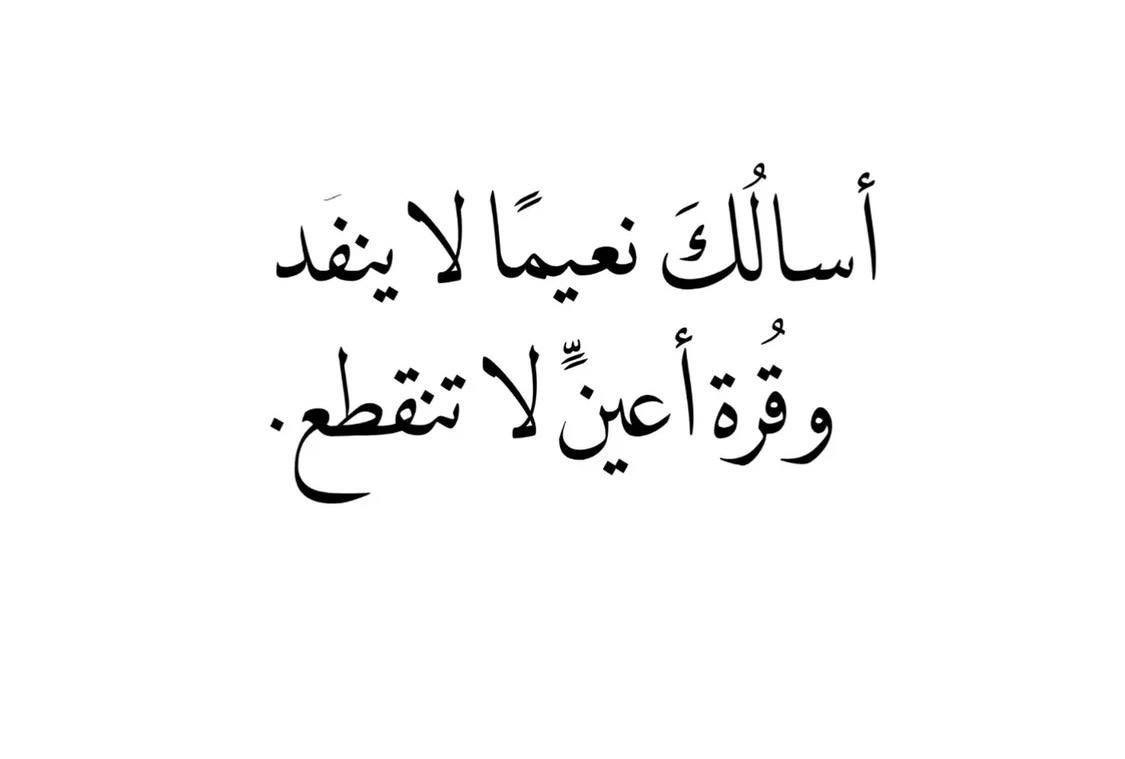 أسالُكَ نعيمًا لا ينفَد
وقُرة أعينٍّ لا تنقطع.